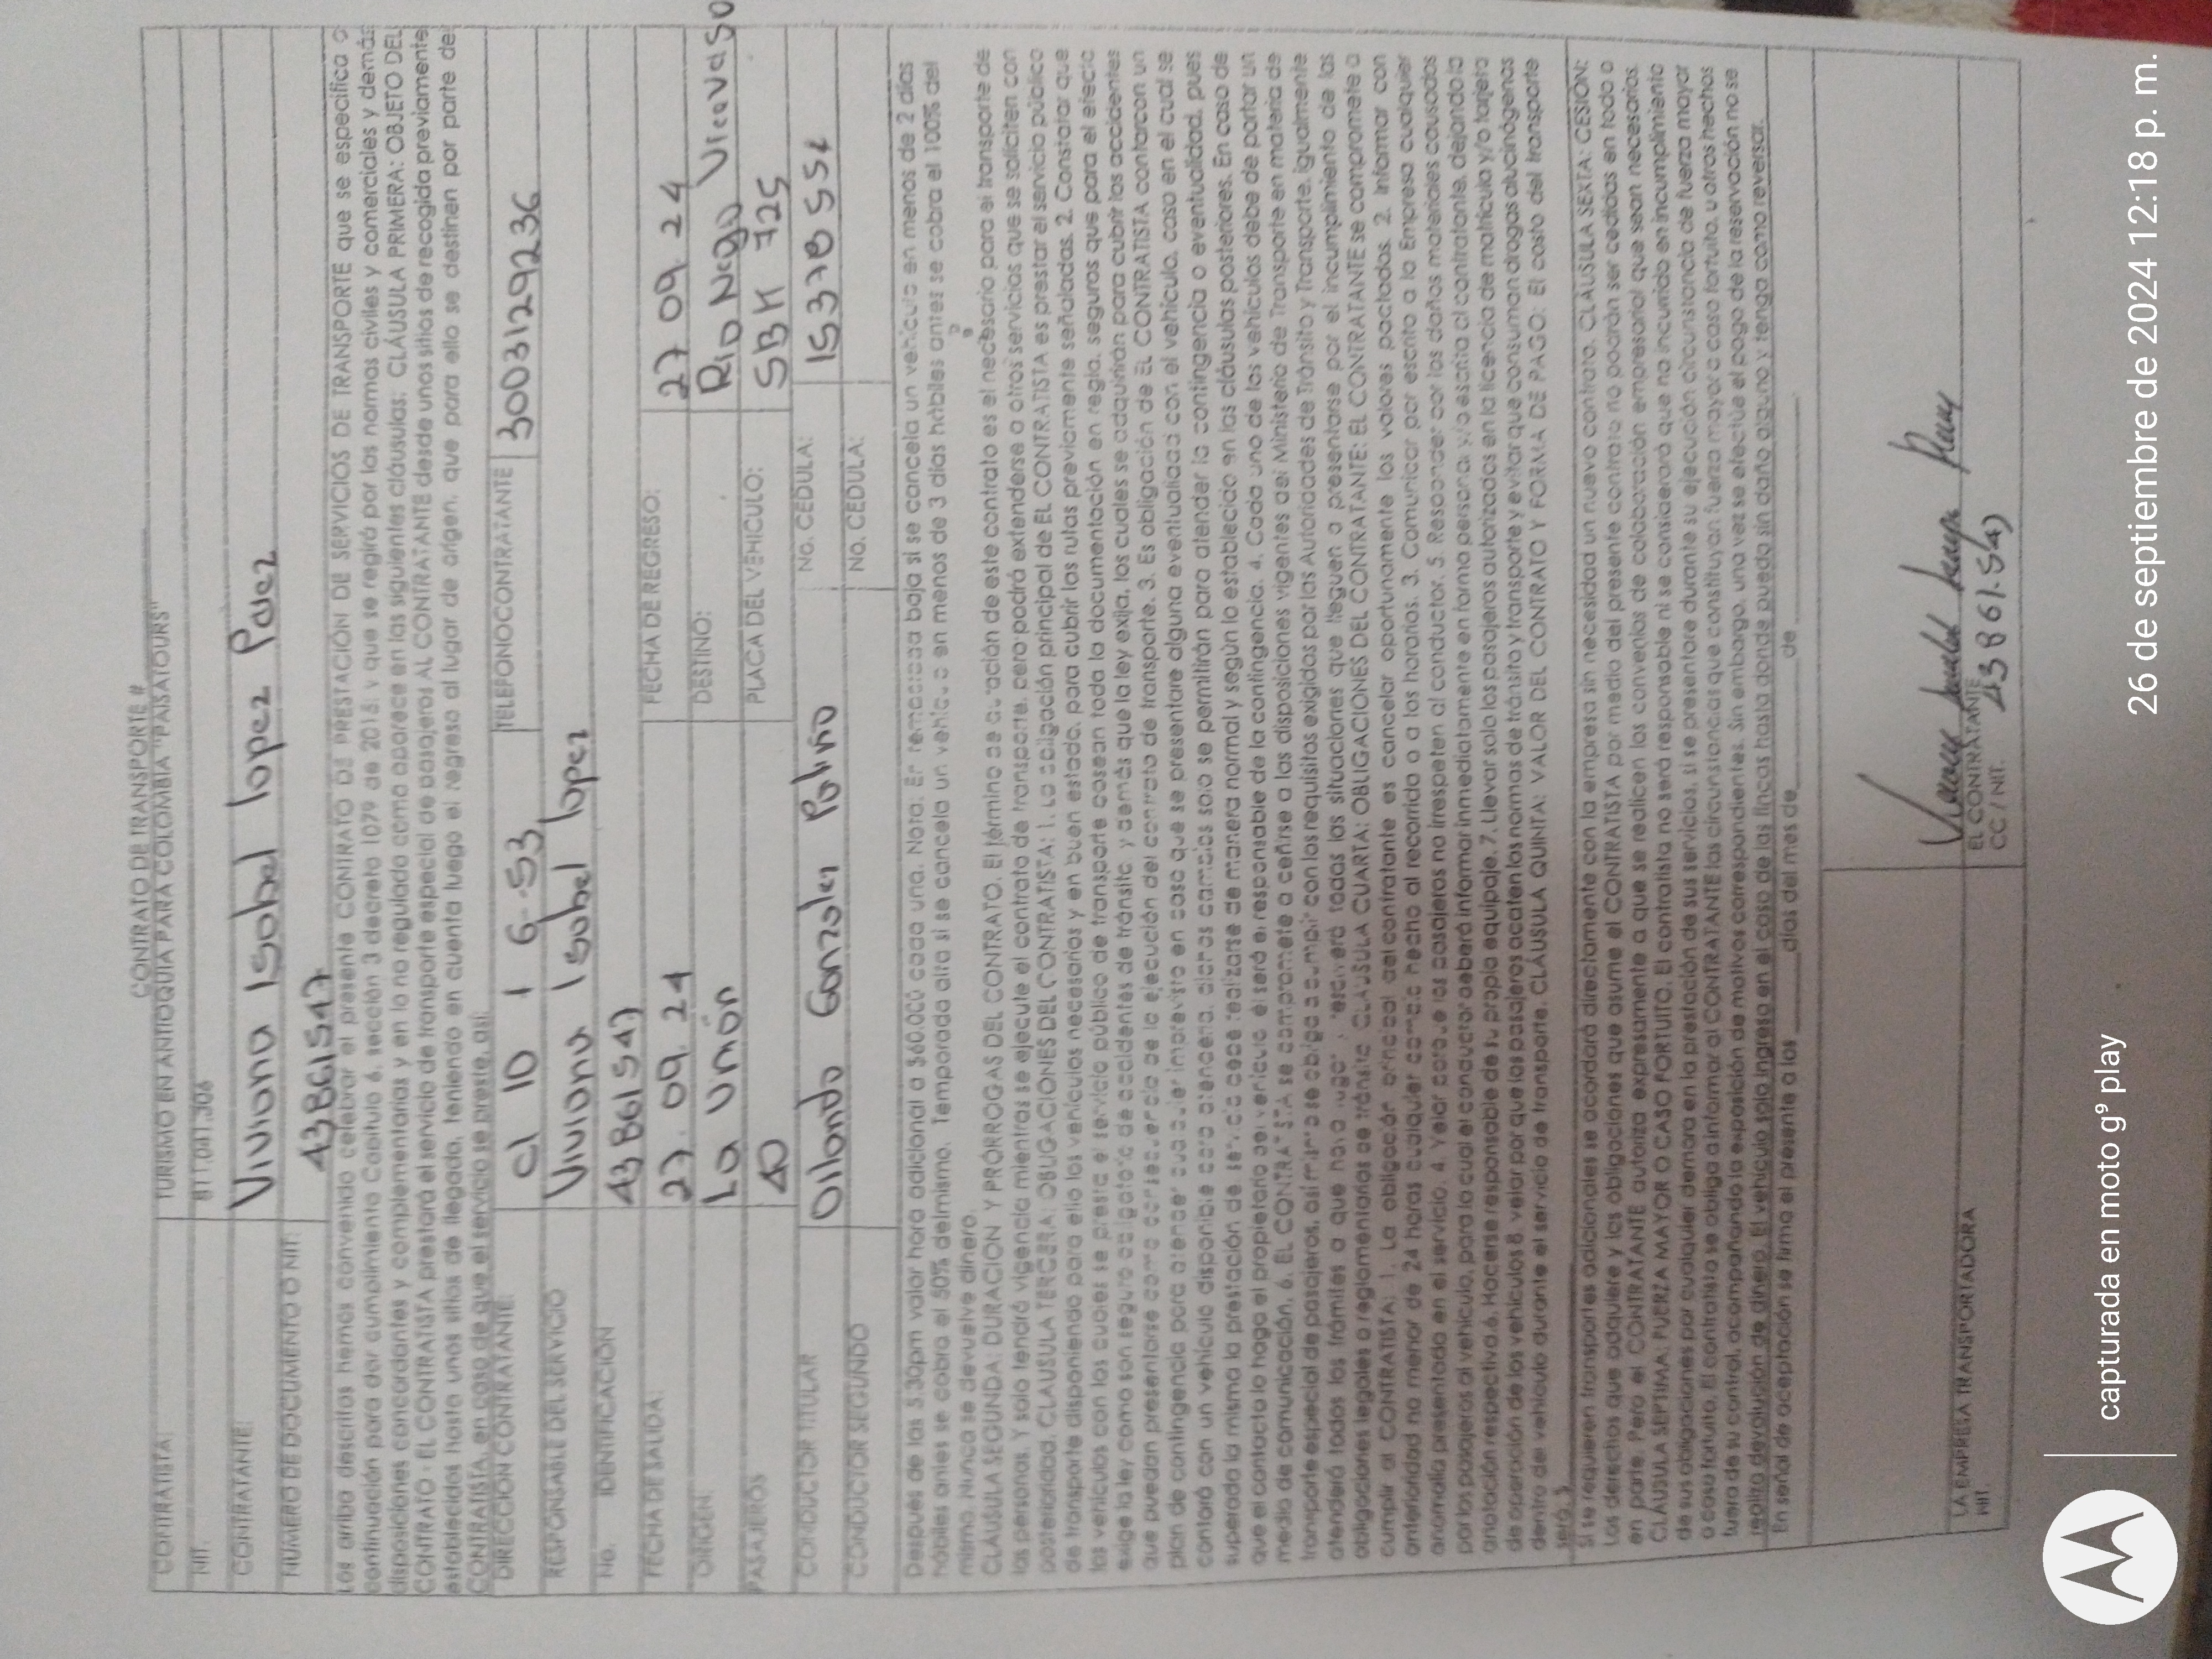 CONTRATO DE TRANSPORTE #
CONTRATISTA: TURISMO EN ANTIOQUIA PARA COLOMBIA "PAISATOURS"
NIT: 811.041.306
CONTRATANTE: Viviana Isabel lopez Paez
NUMERO DE DOCUMENTO O NIT: 43861547
Los arriba descritos hemos convenido celebrar el presente CONTRATO DE PRESTACIÓN DE SERVICIOS DE TRANSPORTE que se especifica a
continuación para dar cumplimiento Capitulo 6, sección 3 decreto 1079 de 2015, y que se regirá por las normas civiles y comerciales y demás
disposiciones concordantes y complementarias y en lo no regulado como aparece en las siguientes cláusulas: CLÁUSULA PRIMERA: OBJETO DEL
CONTRATO: EL CONTRATISTA prestará el servicio de transporte especial de pasajeros AL CONTRATANTE desde unos sitios de recogida previamente
establecidos hasta unos sitios de llegada, teniendo en cuenta luego el regreso al lugar de origen, que para ello se destinen por parte del
CONTRATISTA, en caso de que el servicio se preste, así:
DIRECCIÓN CONTRATANTE: cl 10 1 6-53 TELEFONOCONTRATANTE 3003129236
RESPONSABLE DEL SERVICIO Viviana Isabel lopez
No. IDENTIFICACION 43861547
FECHA DE SALIDA: 27.09.24 FECHA DE REGRESO: 27 09 24
ORIGEN: La Unión DESTINO: Rio Negro
PASAJEROS 40 PLACA DEL VEHICULO: 725
CONDUCTOR TITULAR Ollando Gonzalez Patiño No. CEDULA:
CONDUCTOR SEGUNDO No. CEDULA:
Después de las 5:30pm valor hora adicional a $60.000 cada una. Nota: En temporada baja si se cancela un vehículo en menos de 2 días
hábiles antes se cobra el 50% del mismo. Temporada alta si se cancela un vehículo en menos de 3 días hábiles antes se cobra el 100% del
mismo. Nunca se devuelve dinero.
CLÁUSULA SEGUNDA: DURACIÓN Y PRÓRROGAS DEL CONTRATO. El término de duración de este contrato es el necesario para el transporte de
las personas. Y solo tendrá vigencia mientras se ejecute el contrato de transporte, pero podrá extenderse a otros servicios que se soliciten con
posterioridad. CLAUSULA TERCERA: OBLIGACIONES DEL CONTRATISTA: 1. La obligación principal de EL CONTRATISTA es prestar el servicio público
de transporte disponiendo para ello los vehículos necesarios y en buen estado, para cubrir las rutas previamente señaladas. 2. Constatar que
los vehículos con los cuales se presta el servicio público de transporte posean toda la documentación en regla, seguros que para el efecto
exige la ley como son seguro obligatorio de accidentes de tránsito, y demás que la ley exija, los cuales se adquirirán para cubrir los accidentes
que puedan presentarse como consecuencia de la ejecución del contrato de transporte. 3. Es obligación de EL CONTRATISTA contar con un
plan de contingencia para atender cualquier imprevisto en caso que se presentare alguna eventualidad con el vehículo, caso en el cual se
contará con un vehículo disponible para atenderla, dichos cambios solo se permitirán para atender la contingencia o eventualidad, pues
superada la misma la prestación de servicio debe realizarse de manera normal y según lo establecido en las cláusulas posteriores. En caso de
que el contacto lo haga el propietario del vehículo él será el responsable de la contingencia. 4. Cada uno de los vehículos debe de portar un
medio de comunicación. 6. EL CONTRATISTA se compromete a ceñirse a las disposiciones vigentes del Ministerio de Transporte en materia de
transporte especial de pasajeros, así mismo se obliga a cumplir con los requisitos exigidos por las Autoridades de Tránsito y Transporte, igualmente
atenderá todos los trámites a que haya lugar y resolverá todas las situaciones que lleguen a presentarse por el incumplimiento de las
obligaciones legales o reglamentarias de tránsito. CLAUSULA CUARTA: OBLIGACIONES DEL CONTRATANTE: EL CONTRATANTE se compromete a
cumplir al CONTRATISTA: 1. La obligación principal del contratante es cancelar oportunamente los valores pactados. 2. Informar con
anterioridad no menor de 24 horas cualquier cambio hecho al recorrido o a los horarios. 3. Comunicar por escrito a la Empresa cualquier
anomalía presentada en el servicio. 4. Velar porque los pasajeros no irrespeten al conductor. 5. Responder por los daños materiales causados
por los pasajeros al vehículo, para lo cual el conductor deberá informar inmediatamente en forma personal y/o escrita al contratante, dejando la
anotación respectiva. 6. Hacerse responsable de su propio equipaje. 7. Llevar solo los pasajeros autorizados en la licencia de matrícula y/o tarjeta
de operación de los vehículos 8. velar por que los pasajeros acaten las normas de tránsito y transporte y evitar que consuman drogas alucinógenas
dentro del vehículo durante el servicio de transporte. CLÁUSULA QUINTA: VALOR DEL CONTRATO Y FORMA DE PAGO: El costo del transporte
será. $
Si se requieren transportes adicionales se acordará directamente con la empresa sin necesidad un nuevo contrato. CLÁUSULA SEXTA: CESIÓN:
Los derechos que adquiere y las obligaciones que asume el CONTRATISTA por medio del presente contrato no podrán ser cedidas en todo o
en parte. Pero el CONTRATANTE autoriza expresamente a que se realicen los convenios de colaboración empresarial que sean necesarios.
CLAUSULA SEPTIMA: FUERZA MAYOR O CASO FORTUITO. El contratista no será responsable ni se considerará que ha incurrido en incumplimiento
de sus obligaciones por cualquier demora en la prestación de sus servicios, si se presentare durante su ejecución circunstancia de fuerza mayor
o caso fortuito. El contratista se obliga a informar al CONTRATANTE las circunstancias que constituyan fuerza mayor o caso fortuito, u otros hechos
fuera de su control, acompañando la exposición de motivos correspondientes. Sin embargo, una vez se efectúe el pago de la reservación no se
realiza devolución de dinero. El vehículo solo ingresa en el caso de las fincas hasta donde pueda sin daño alguno y tenga como reversar.
En señal de aceptación se firma el presente a los ______ días del mes de ____________ de ____________
LA EMPRESA TRANSPORTADORA EL CONTRATANTE
NIT. CC / NIT.
capturada en moto g⁹ play
26 de septiembre de 2024 12:18 p. m.